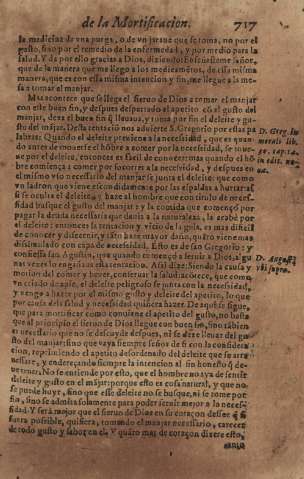 de la Mortificacion. 717
la medicina de una purga, o de un jarave que se toma, no por el
gusto, sino por el remedio de la enfermedad, y por medio para la
salud. Y da por ello gracias a Dios, diziendo: Enseñasteme señor,
que de la manera que me llego a los medicamētos, de essa misma
manera, que es con essa misma intencion y fin, me llegue a la mesa
a tomar el manjar.
Mas acontece que se llega el siervo de Dios a tomar el manjar
con este buen fin, y despues despertado el apetito con el gusto del
manjar, dexa el buen fin q̃ llevava, y toma por fin el deleite y gusto
del manjar. Desta tentacion nos advierte S. Gregorio por estas palabras:
Quando el deleite pretende a la necessidad, que es quando
antes de moverse el hõbre a comer por la necessidad, se mueve
por el deleite, entonces es facil de conocer: mas quando el hõbre
comiença a comer por socorrer a la necessidad, y despues en
el mismo vso necessario del manjar se junta el deleite, que como
vn ladron que viene escondidamente por las espaldas a hurtar: al
si se oculta el deleite, y haze al hombre que con titulo de necessidad
busque el gusto del manjar, y la comida que començó por
pagar la deuda necessaria que devia a la naturaleza, la acabe por
el deleite: entonces la tentacion y vicio de la gula, es mas dificil
de conocer y discernir, y assi haze mayor daño, quāto viene mas
dissimulado con capa de necessidad. Esto es de san Gregorio: y
confiessa san Agustin, que quando començó a servir a Dios, algunas
vezes le engañava esta tentacion. Assi dize: Siendo la causa y
motivo del comer y bever, conservar la salud: acaece, que como
vn criado de apie, el deleite peligroso se junta con la necessidad,
y vengo a hazer por el mismo gusto y deleite del apetito, lo que
por causa de la salud y necessidad quisiera hazer. De aqui se sigue,
que para mortificar como conviene el apetito del gusto, no basta
que al principio el siervo de Dios llegue con buen fin, sino tābien
es necessario que no se descuyde despues, ni se dexe llevar del gusto
del manjar: sino que vaya siempre señor de si con la consideracion,
reprimiendo el apetito desordenado del deleite que se
y endereçando siempre la intencion al fin honesto q̃ de-
No se entiende por esto, que el hombre no aya de sentir
deleite y gusto en el mājar: porque esto es cosa natural, y que no
se puede huyr, sino que esse deleite no se busque, ni se tome por
fin, sino se admita solamente para poder servir mejor a la necessidad.
Y será mejor que el siervo de Dios en su coraçon dessee q̃ si
fuera possible, quisiera, tomando el manjar necessario, carecer
de todo gusto y sabor en el. Y quāto mas de coraçon diere esto,
D. Greg. lib.
D. August.
vbi supra.